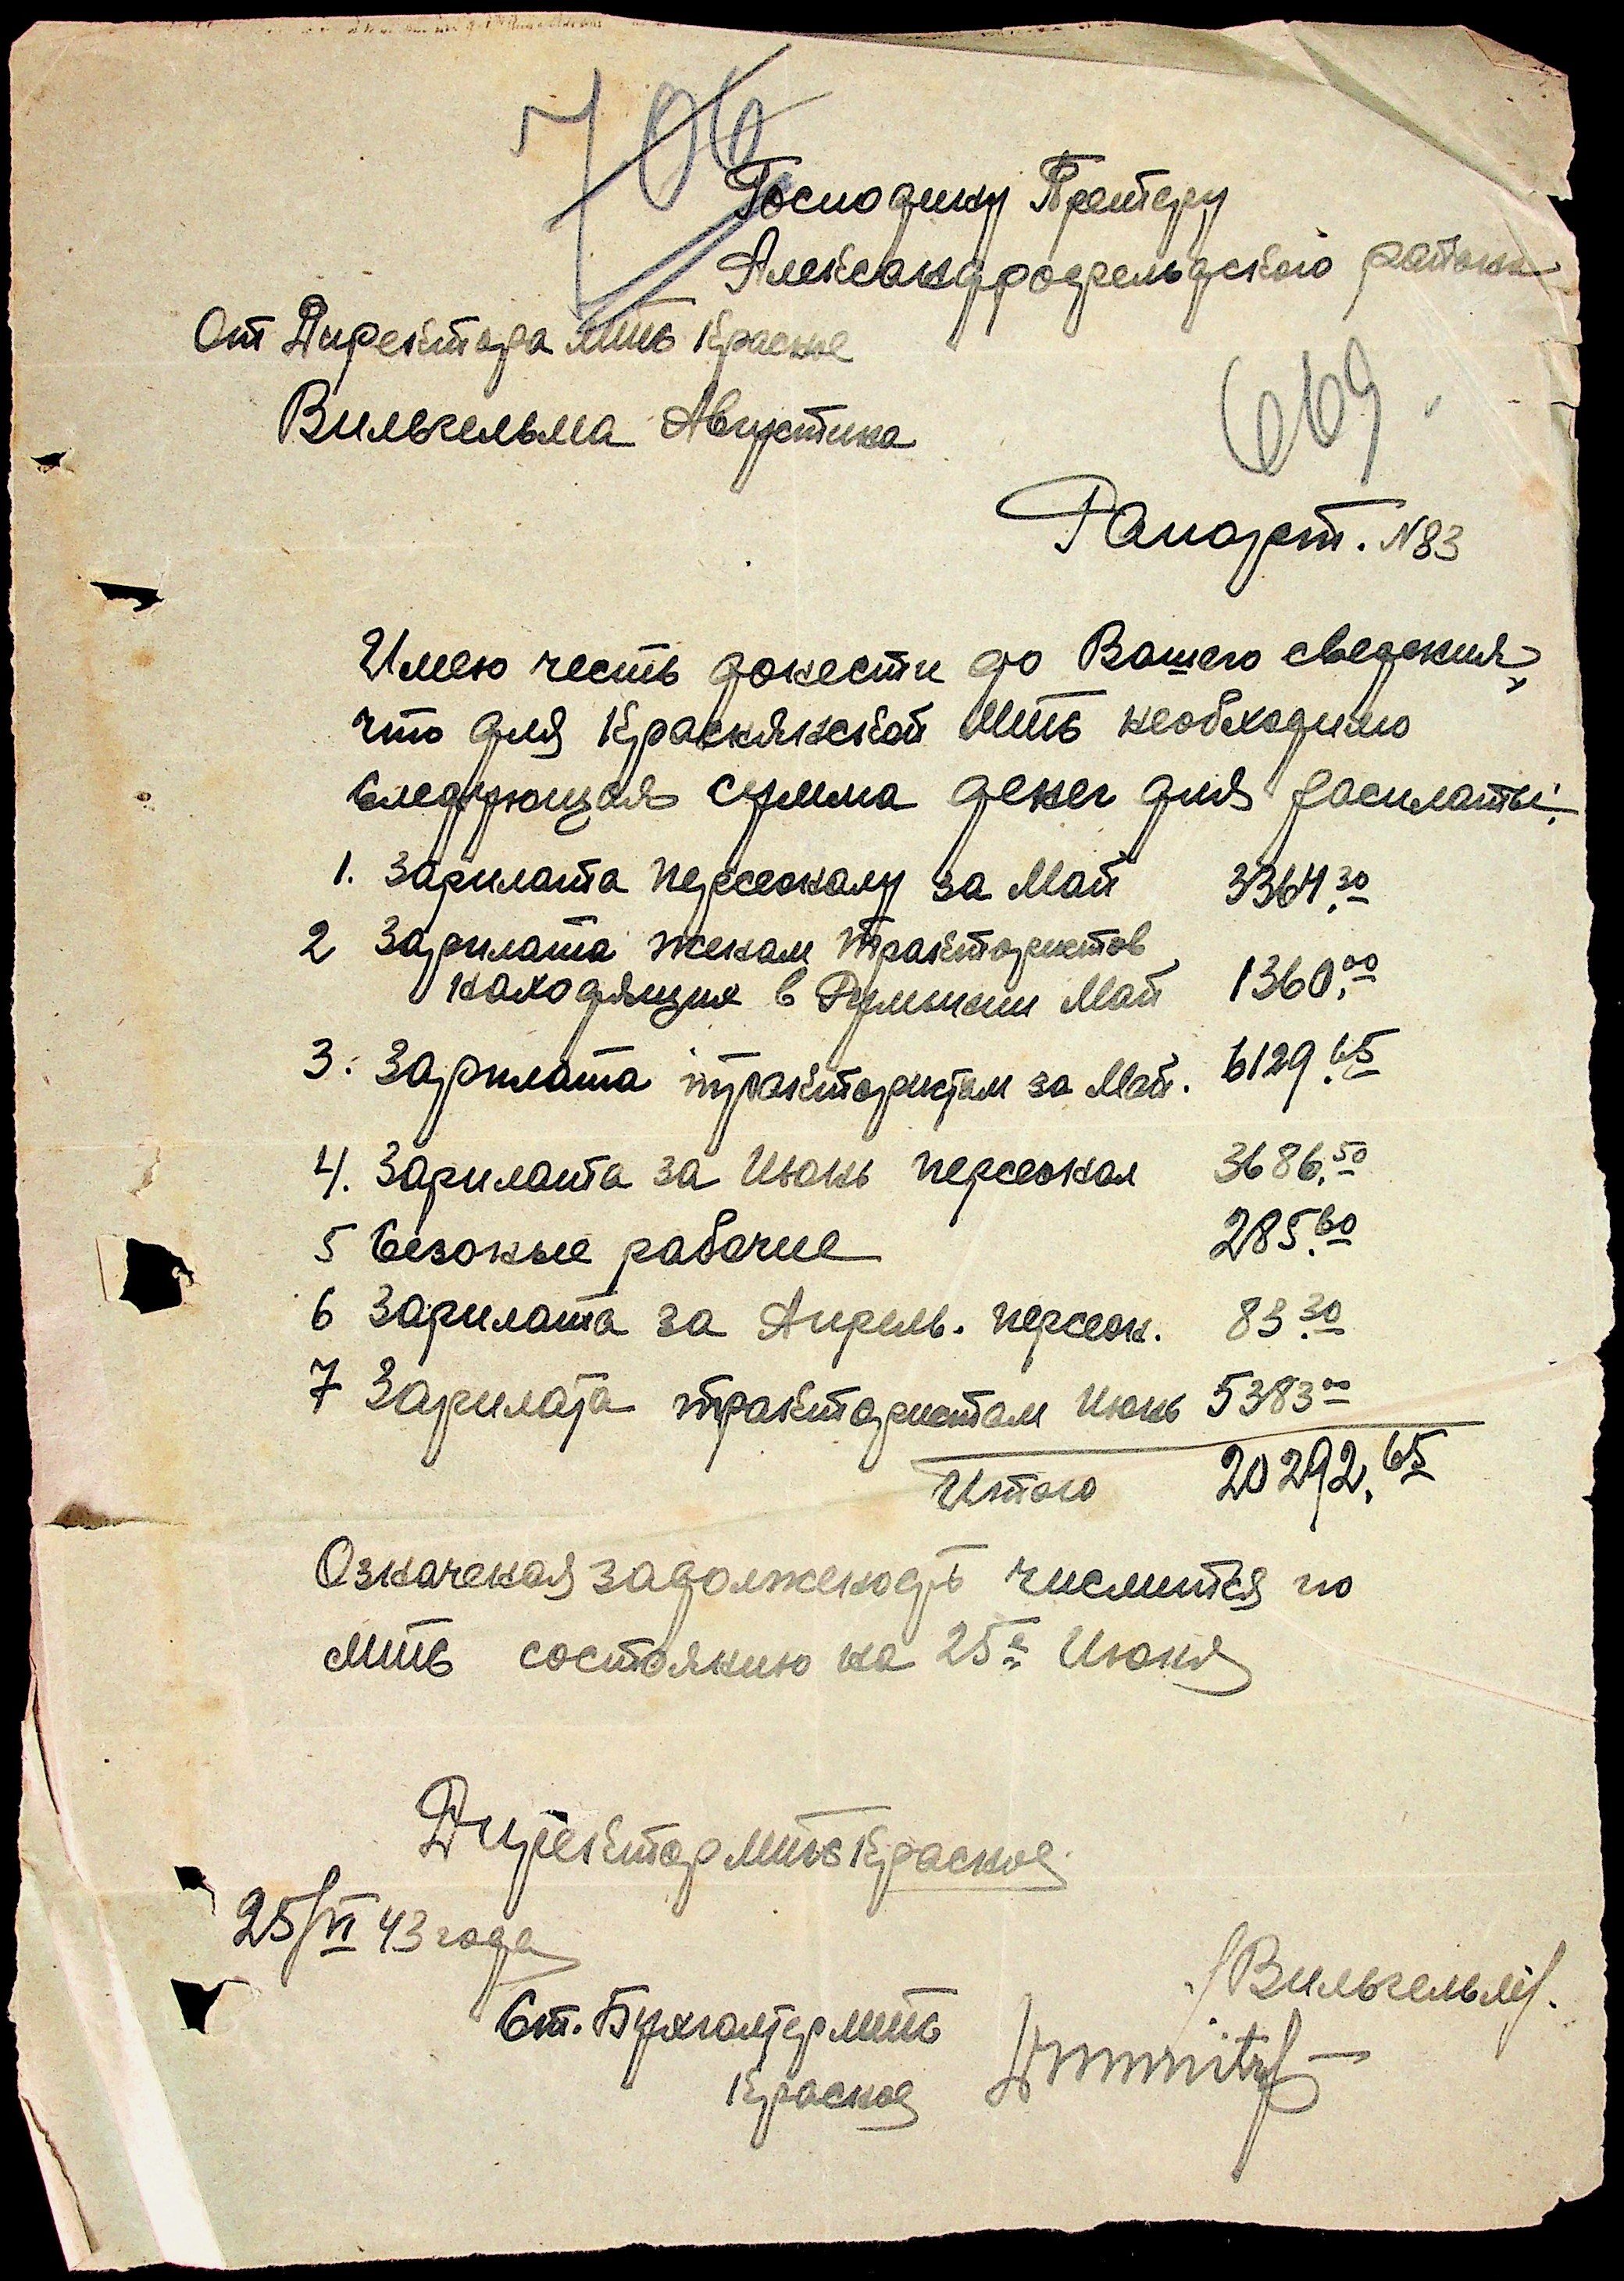 706
Господину Претору
Александрофельдского района
От Директора МТС Красное
Вильгельма Августина
669
Рапорт. N83
Имею честь донести до Вашего сведения,
что для Краснянской МТС необходимо
Следующая сумма денег для расплаты:
1. Зарплата персеоналу за Май 3364.30
2 Зарплата женам трактористов
находящих в Румынии Май 1360.00
3. Зарплата трактористам за Май. 6129.65
4. Зарплата за Июнь персеонал 3686.50
5 Сезоные рабочие 285.60
6 Зарплата за Апрель. персеон. 83.30
7 Зарплата трактористам Июнь 5383 00
Итого 20292.65
Означеная задолженость числится по
МТС состоянию на 25е Июня
Директор МТС Красное
25/VI 43 года
/Вильгельм/.
Ст. Бухгалтер МТС
Красное